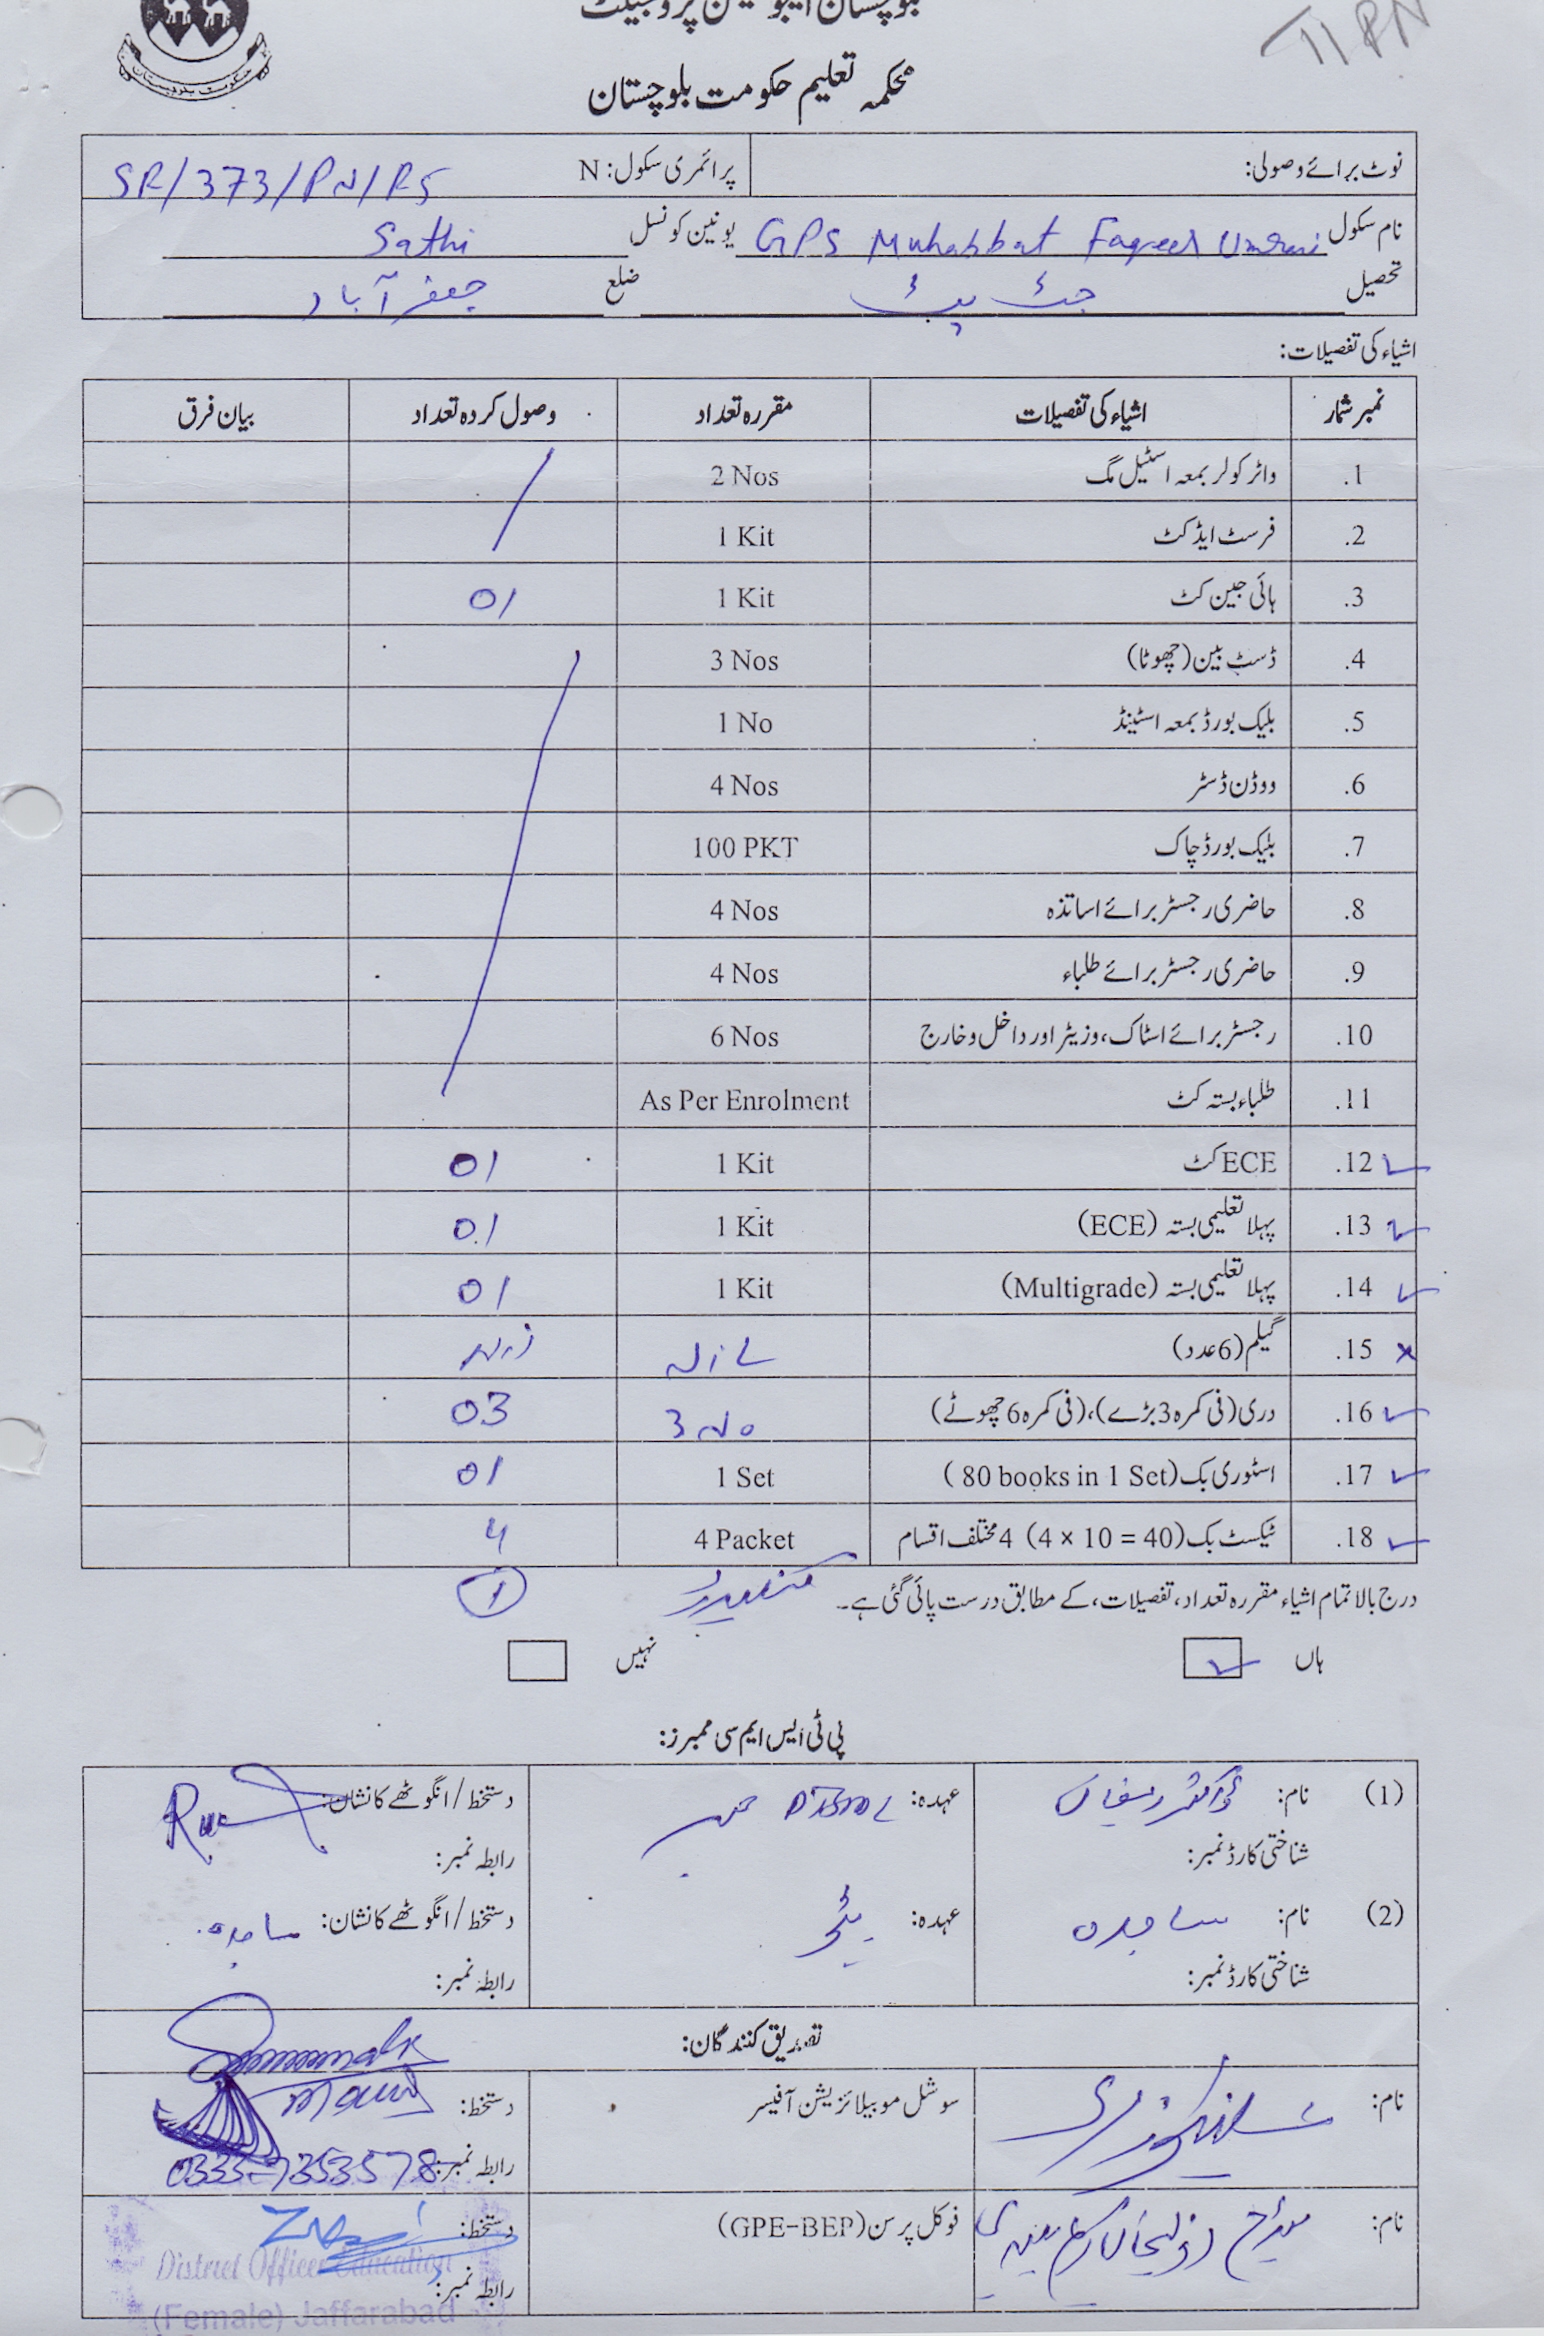 حکومت بلوچستان
محکمہ تعلیم حکومت بلوچستان
نوٹ برائے وصولی: پرائمری سکول: N SR/373/PN/RS
نام سکول GPS Muhabbat Faqeer Umrani یونین کونسل Sathi
تحصیل جھٹ پٹ ضلع جعفر آباد
اشیاء کی تفصیلات:
نمبر شمار اشیاء کی تفصیلات مقررہ تعداد وصول کردہ تعداد بیان فرق
.1 واٹر کولر بمعہ اسٹیل مگ 2 Nos
.2 فرسٹ ایڈ کٹ 1 Kit
.3 ہائی جین کٹ 1 Kit 01
.4 ڈسٹ بین (چھوٹا) 3 Nos
.5 بلیک بورڈ بمعہ اسٹینڈ 1 No
.6 ووڈن ڈسٹر 4 Nos
.7 بلیک بورڈ چاک 100 PKT
.8 حاضری رجسٹر برائے اساتذہ 4 Nos
.9 حاضری رجسٹر برائے طلباء 4 Nos
.10 رجسٹر برائے اسٹاک، وزیٹر اور داخل و خارج 6 Nos
.11 طلباء بستہ کٹ As Per Enrolment
.12 ECE کٹ 1 Kit 01
.13 پہلا تعلیمی بستہ (ECE) 1 Kit 01
.14 پہلا تعلیمی بستہ (Multigrade) 1 Kit 01
.15 گیلم (6 عدد)
.16 دری (فی کمرہ 3 بڑے)، (فی کمرہ 6 چھوٹے) 3 No 03
.17 اسٹوری بک (80 books in 1 Set) 1 Set 01
.18 ٹیکسٹ بک (4 × 10 = 40) 4 مختلف اقسام 4 Packet 4
درج بالا تمام اشیاء مقررہ تعداد، تفصیلات، کے مطابق درست پائی گئی ہے۔ 1
ہاں نہیں
پی ٹی ایس ایم سی ممبرز:
(1) نام: عہدہ: دستخط / انگوٹھے کا نشان:
شناختی کارڈ نمبر: رابطہ نمبر:
(2) نام: ساجدہ عہدہ: دستخط / انگوٹھے کا نشان: ساجدہ
شناختی کارڈ نمبر: رابطہ نمبر:
تصدیق کنندگان:
نام: سوشل موبیلائزیشن آفیسر دستخط:
رابطہ نمبر: 0333-7353578
نام: فوکل پرسن (GPE-BEP) دستخط:
District Officer Education
رابطہ نمبر:
(Female) Jaffarabad